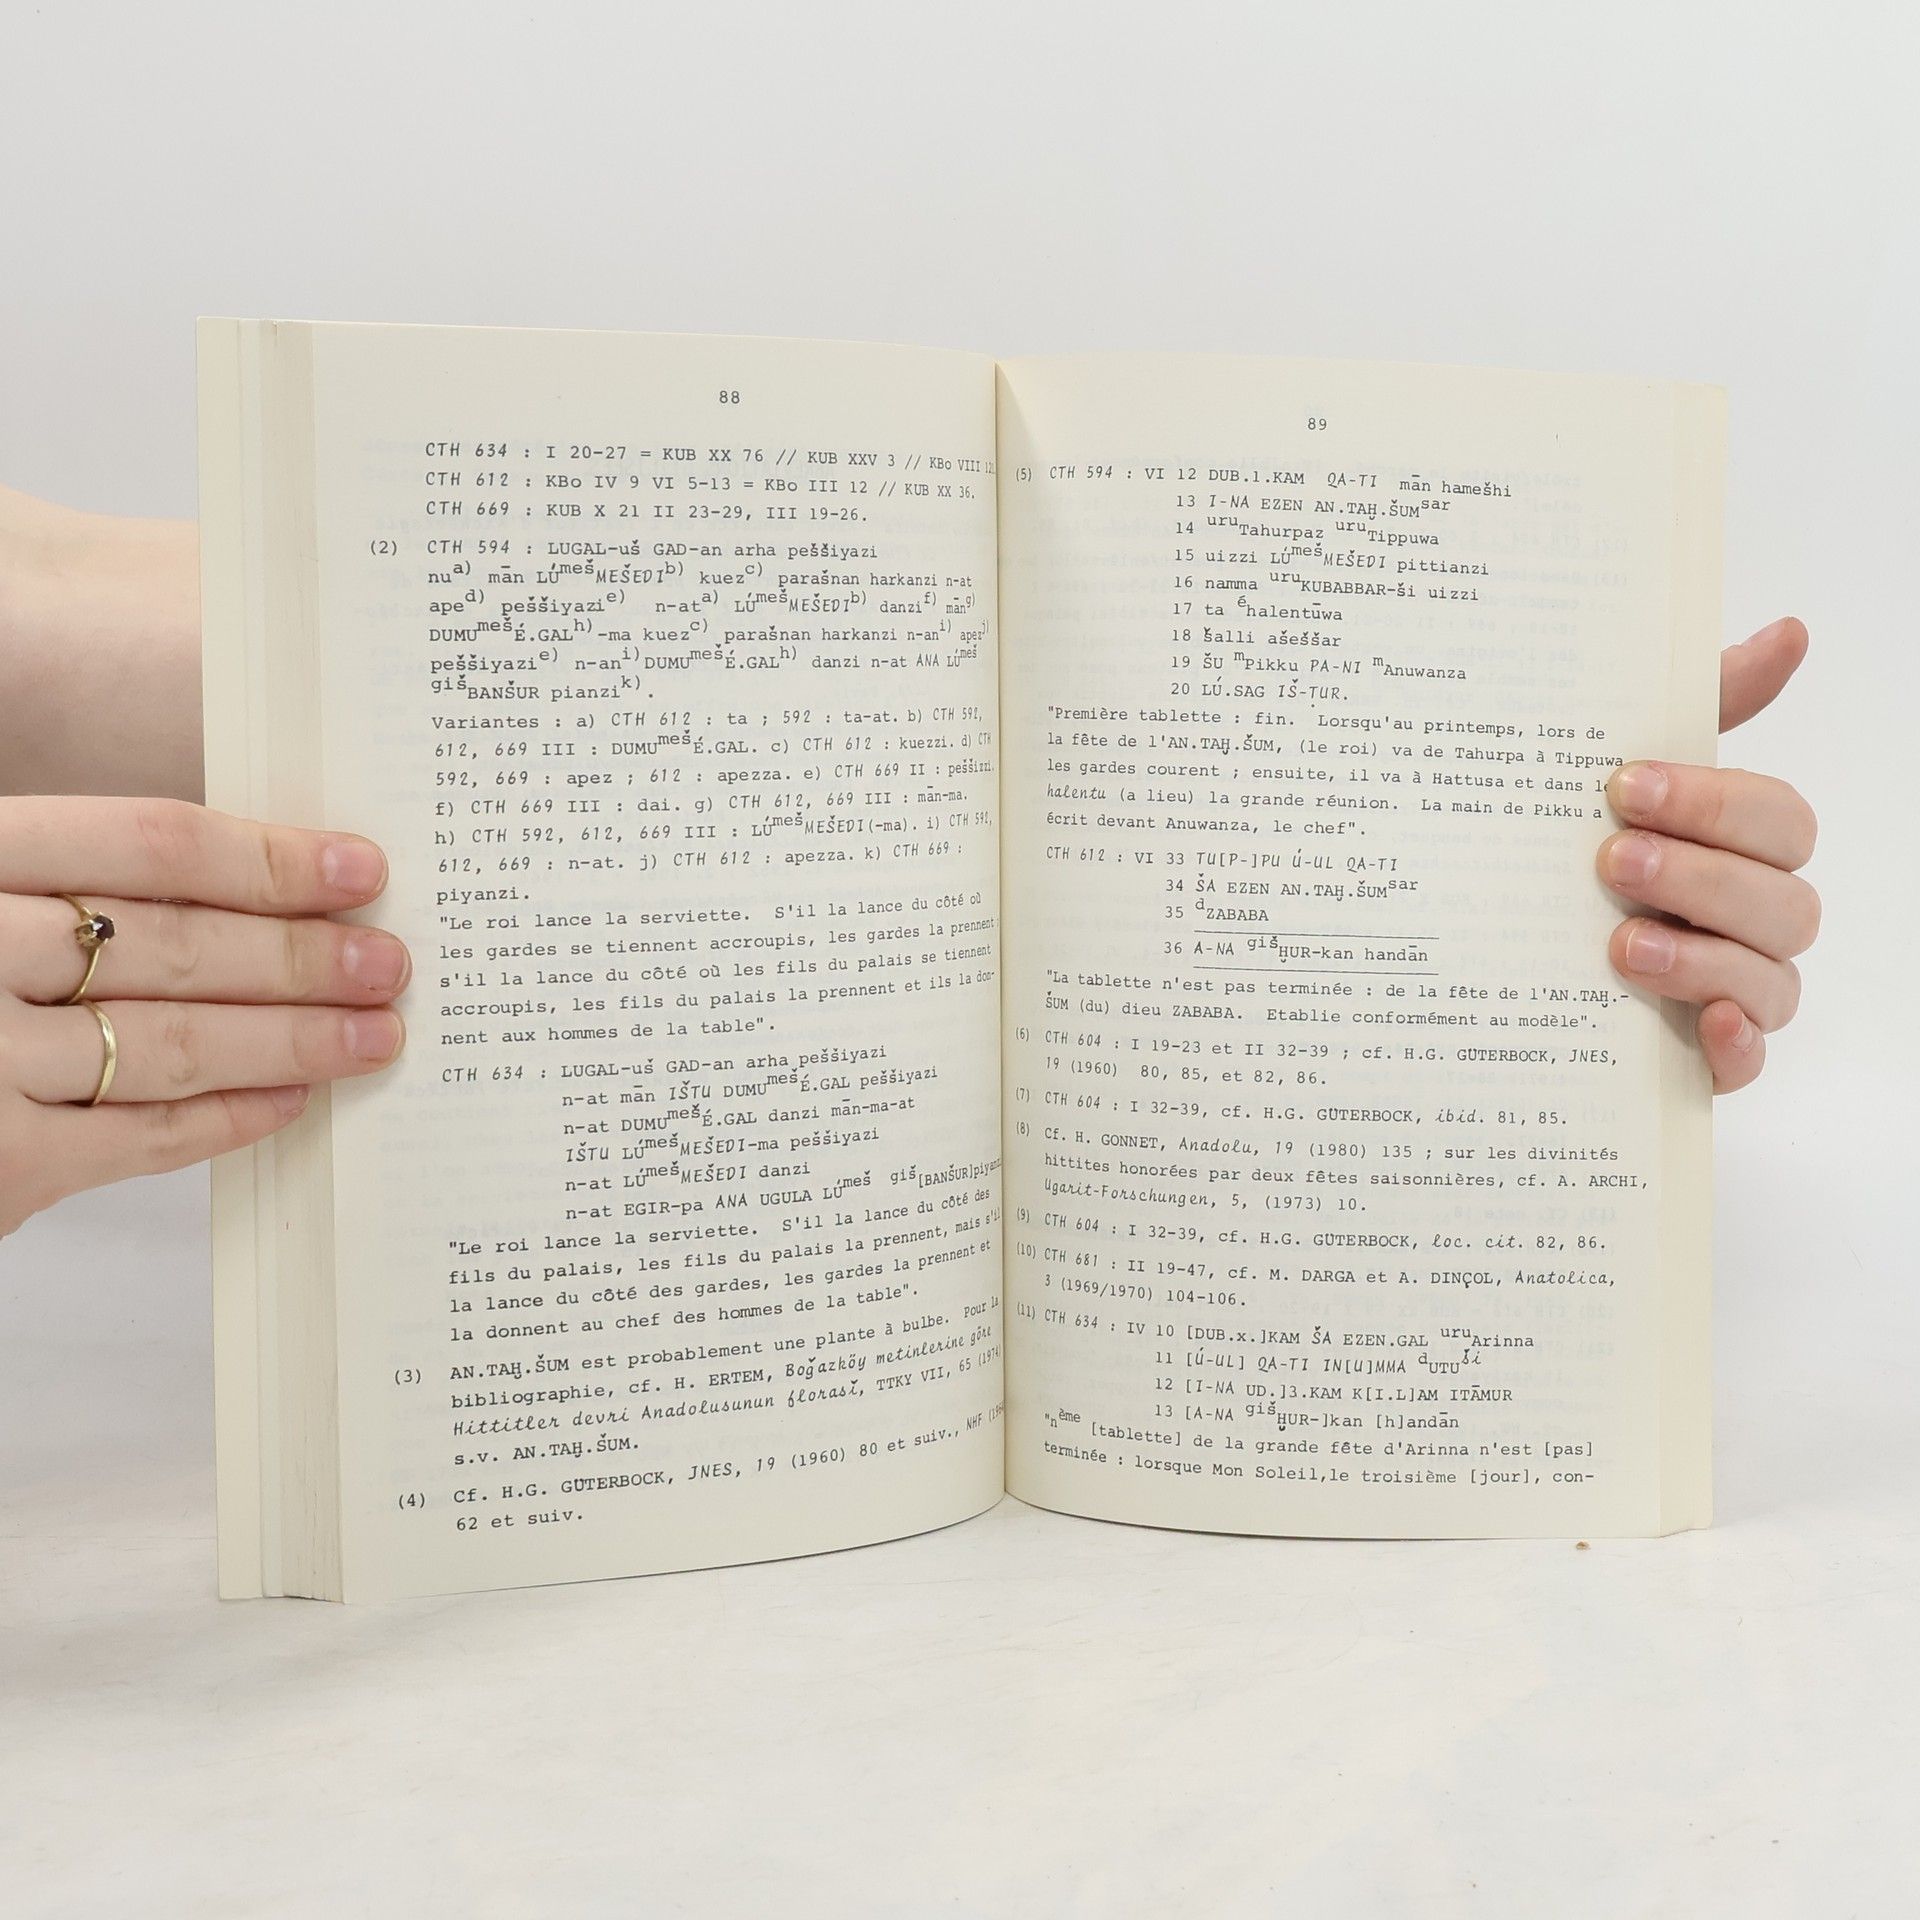 88
CTH 634 : I 20-27 = KUB XX 76 // KUB XXV 3 // KBo VIII
CTH 612 : KBo IV 9 VI 5-13 = KBo III 12 // KUB XX 36.
CTH 669 : KUB X 21 II 23-29, III 19-26.
(2) CTH 594 : LUGAL-uš GAD-an arha peššiyazi
nuᵃ⁾ mān LÚᵐᵉˢ̌MEŠEDIᵇ⁾ kuezᶜ⁾ parašnan harkanzi n-at
apeᵈ⁾ peššiyaziᵉ⁾ n-atᵃ⁾ LÚᵐᵉˢ̌MEŠEDIᵇ⁾ danziᶠ⁾ mānᵍ⁾
DUMUᵐᵉˢ̌É.GALʰ⁾-ma kuezᶜ⁾ parašnan harkanzi n-anⁱ⁾ apezʲ⁾
peššiyaziᵉ⁾ n-anⁱ⁾DUMUᵐᵉˢ̌É.GALʰ⁾ danzi n-at ANA LÚᵐᵉˢ̌
ᵍⁱˢ̌BANŠUR pianziᵏ⁾.
Variantes : a) CTH 612 : ta ; 592 : ta-at. b) CTH 592,
612, 669 III : DUMUᵐᵉˢ̌É.GAL. c) CTH 612 : kuezzi. d) CTH
592, 669 : apez ; 612 : apezza. e) CTH 669 II : peššizzi.
f) CTH 669 III : dai. g) CTH 612, 669 III : mān-ma.
h) CTH 592, 612, 669 III : LÚᵐᵉˢ̌MEŠEDI(-ma). i) CTH 592,
612, 669 : n-at. j) CTH 612 : apezza. k) CTH 669 :
piyanzi.
"Le roi lance la serviette. S'il la lance du côté où
les gardes se tiennent accroupis, les gardes la prennent ;
s'il la lance du côté où les fils du palais se tiennent
accroupis, les fils du palais la prennent et ils la don-
nent aux hommes de la table".
CTH 634 : LUGAL-uš GAD-an arha peššiyazi
n-at mān IŠTU DUMUᵐᵉˢ̌É.GAL peššiyazi
n-at DUMUᵐᵉˢ̌É.GAL danzi mān-ma-at
IŠTU LÚᵐᵉˢ̌MEŠEDI-ma peššiyazi
n-at LÚᵐᵉˢ̌MEŠEDI danzi
n-at EGIR-pa ANA UGULA LÚᵐᵉˢ̌ ᵍⁱˢ̌[BANŠUR]piyanzi
"Le roi lance la serviette. S'il la lance du côté des
fils du palais, les fils du palais la prennent, mais s'il
la lance du côté des gardes, les gardes la prennent et
la donnent au chef des hommes de la table".
(3) AN.TAḪ.ŠUM est probablement une plante à bulbe. Pour la
bibliographie, cf. H. ERTEM, Boğazköy metinlerine göre
Hittitler devri Anadolusunun florası, TTKY VII, 65 (1974)
s.v. AN.TAḪ.ŠUM.
(4) Cf. H.G. GÜTERBOCK, JNES, 19 (1960) 80 et suiv., NHF
62 et suiv.
89
(5) CTH 594 : VI 12 DUB.1.KAM QA-TI mān hamešhi
13 I-NA EZEN AN.TAḪ.ŠUMˢᵃʳ
14 ᵘʳᵘTahurpaz ᵘʳᵘTippuwa
15 uizzi LÚᵐᵉˢ̌MEŠEDI pittianzi
16 namma ᵘʳᵘKUBABBAR-ši uizzi
17 ta ᵉ́halentūwa
18 šalli ašeššar
19 ŠU ᵐPikku PA-NI ᵐAnuwanza
20 LÚ.SAG IŠ-TUR.
"Première tablette : fin. Lorsqu'au printemps, lors de
la fête de l'AN.TAḪ.ŠUM, (le roi) va de Tahurpa à Tippuwa
les gardes courent ; ensuite, il va à Hattusa et dans le
halentu (a lieu) la grande réunion. La main de Pikku a
écrit devant Anuwanza, le chef".
CTH 612 : VI 33 TU[P-]PU Ú-UL QA-TI
34 ŠA EZEN AN.TAḪ.ŠUMˢᵃʳ
35 ᵈZABABA
36 A-NA ᵍⁱˢ̌ḪUR-kan handān
"La tablette n'est pas terminée : de la fête de l'AN.TAḪ.-
ŠUM (du) dieu ZABABA. Etablie conformément au modèle".
(6) CTH 604 : I 19-23 et II 32-39 ; cf. H.G. GÜTERBOCK, JNES,
19 (1960) 80, 85, et 82, 86.
(7) CTH 604 : I 32-39, cf. H.G. GÜTERBOCK, ibid. 81, 85.
(8) Cf. H. GONNET, Anadolu, 19 (1980) 135 ; sur les divinités
hittites honorées par deux fêtes saisonnières, cf. A. ARCHI,
Ugarit-Forschungen, 5, (1973) 10.
(9) CTH 604 : I 32-39, cf. H.G. GÜTERBOCK, loc. cit. 82, 86.
(10) CTH 681 : II 19-47, cf. M. DARGA et A. DINÇOL, Anatolica,
3 (1969/1970) 104-106.
(11) CTH 634 : IV 10 [DUB.x.]KAM ŠA EZEN.GAL ᵘʳᵘArinna
11 [Ú-UL] QA-TI IN[U]MMA ᵈUTUˢ̌ⁱ
12 [I-NA UD.]3.KAM K[I.L]AM ITĀMUR
13 [A-NA ᵍⁱˢ̌ḪUR-]kan [h]andān
"nᵉ̀ᵐᵉ [tablette] de la grande fête d'Arinna n'est [pas]
terminée : lorsque Mon Soleil,le troisième [jour], con-